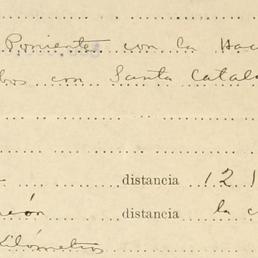 Poniente con la Hac
bos con Santa Catal
distancia 121
eón distancia la c
Kilómetros